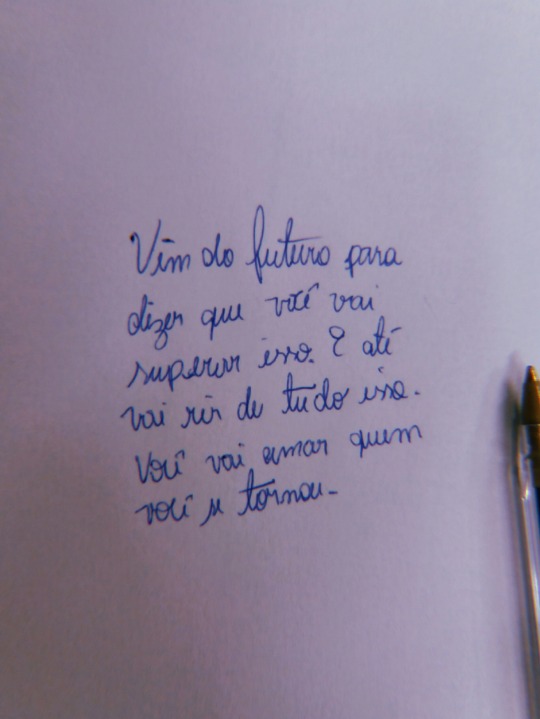 Vim do futuro para
dizer que você vai
superar isso. E até
vai rir de tudo isso.
Você vai amar quem
você se tornou.